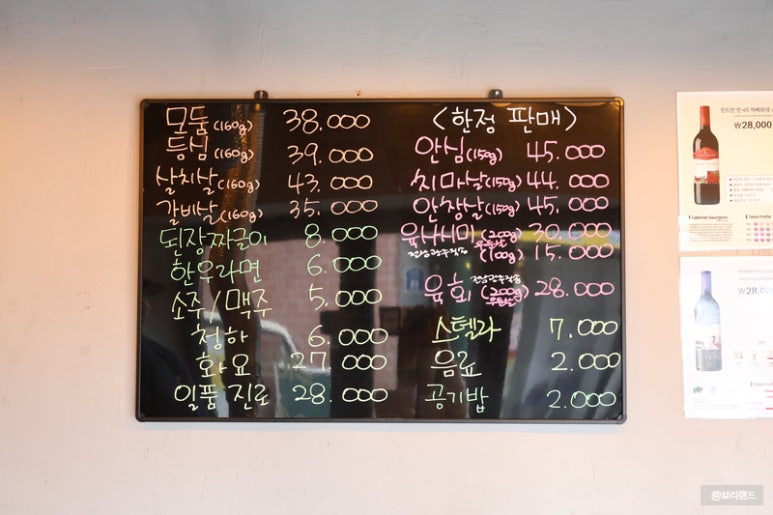 모둠(160g) 38.000
등심(160g) 39.000
살치살(160g) 43.000
갈비살(160g) 35.000
된장짜글이 8.000
한우라면 6.000
소주/맥주 5.000
청하 6.000
화요 27.000
일품 진로 28.000
<한정 판매>
안심(150g) 45.000
치마살(150g) 44.000
안창살(150g) 45.000
육사시미 (200g) 30.000
(100g) 15.000
육회 (200g) 28.000
스텔라 7.000
음료 2.000
공기밥 2.000
₩28,000
Cabernet Sauvignon
₩28,00
@브리랜드